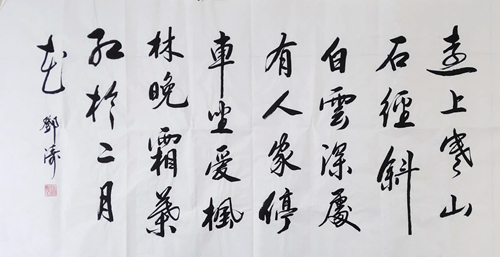 遠上寒山
石經斜
白雲深處
有人家停
車坐愛楓
林晚霜葉
紅於二月
花
鄧濤